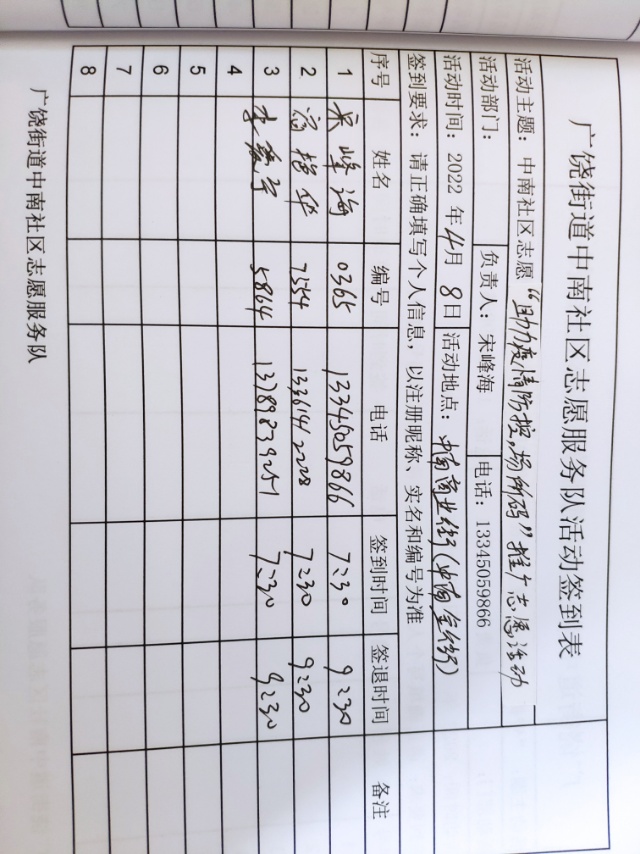 广饶街道中南社区志愿服务队活动签到表
活动主题：中南社区志愿“助力疫情防控。场所码”推广志愿活动
活动部门： 负责人：宋峰海 电话：13345059866
活动时间：2022 年 4月 8日 活动地点：中南商业街(中南金街)
签到要求：请正确填写个人信息，以注册昵称、实名和编号为准
序号 姓名 编号 电话 签到时间 签退时间 备注
1 宋峰海 0365 13345059866 7:30 9:30
2 7554 13361412228 7:30 9:30
3 5864 13789839251 7:30 9:30
4
5
6
7
8
广饶街道中南社区志愿服务队